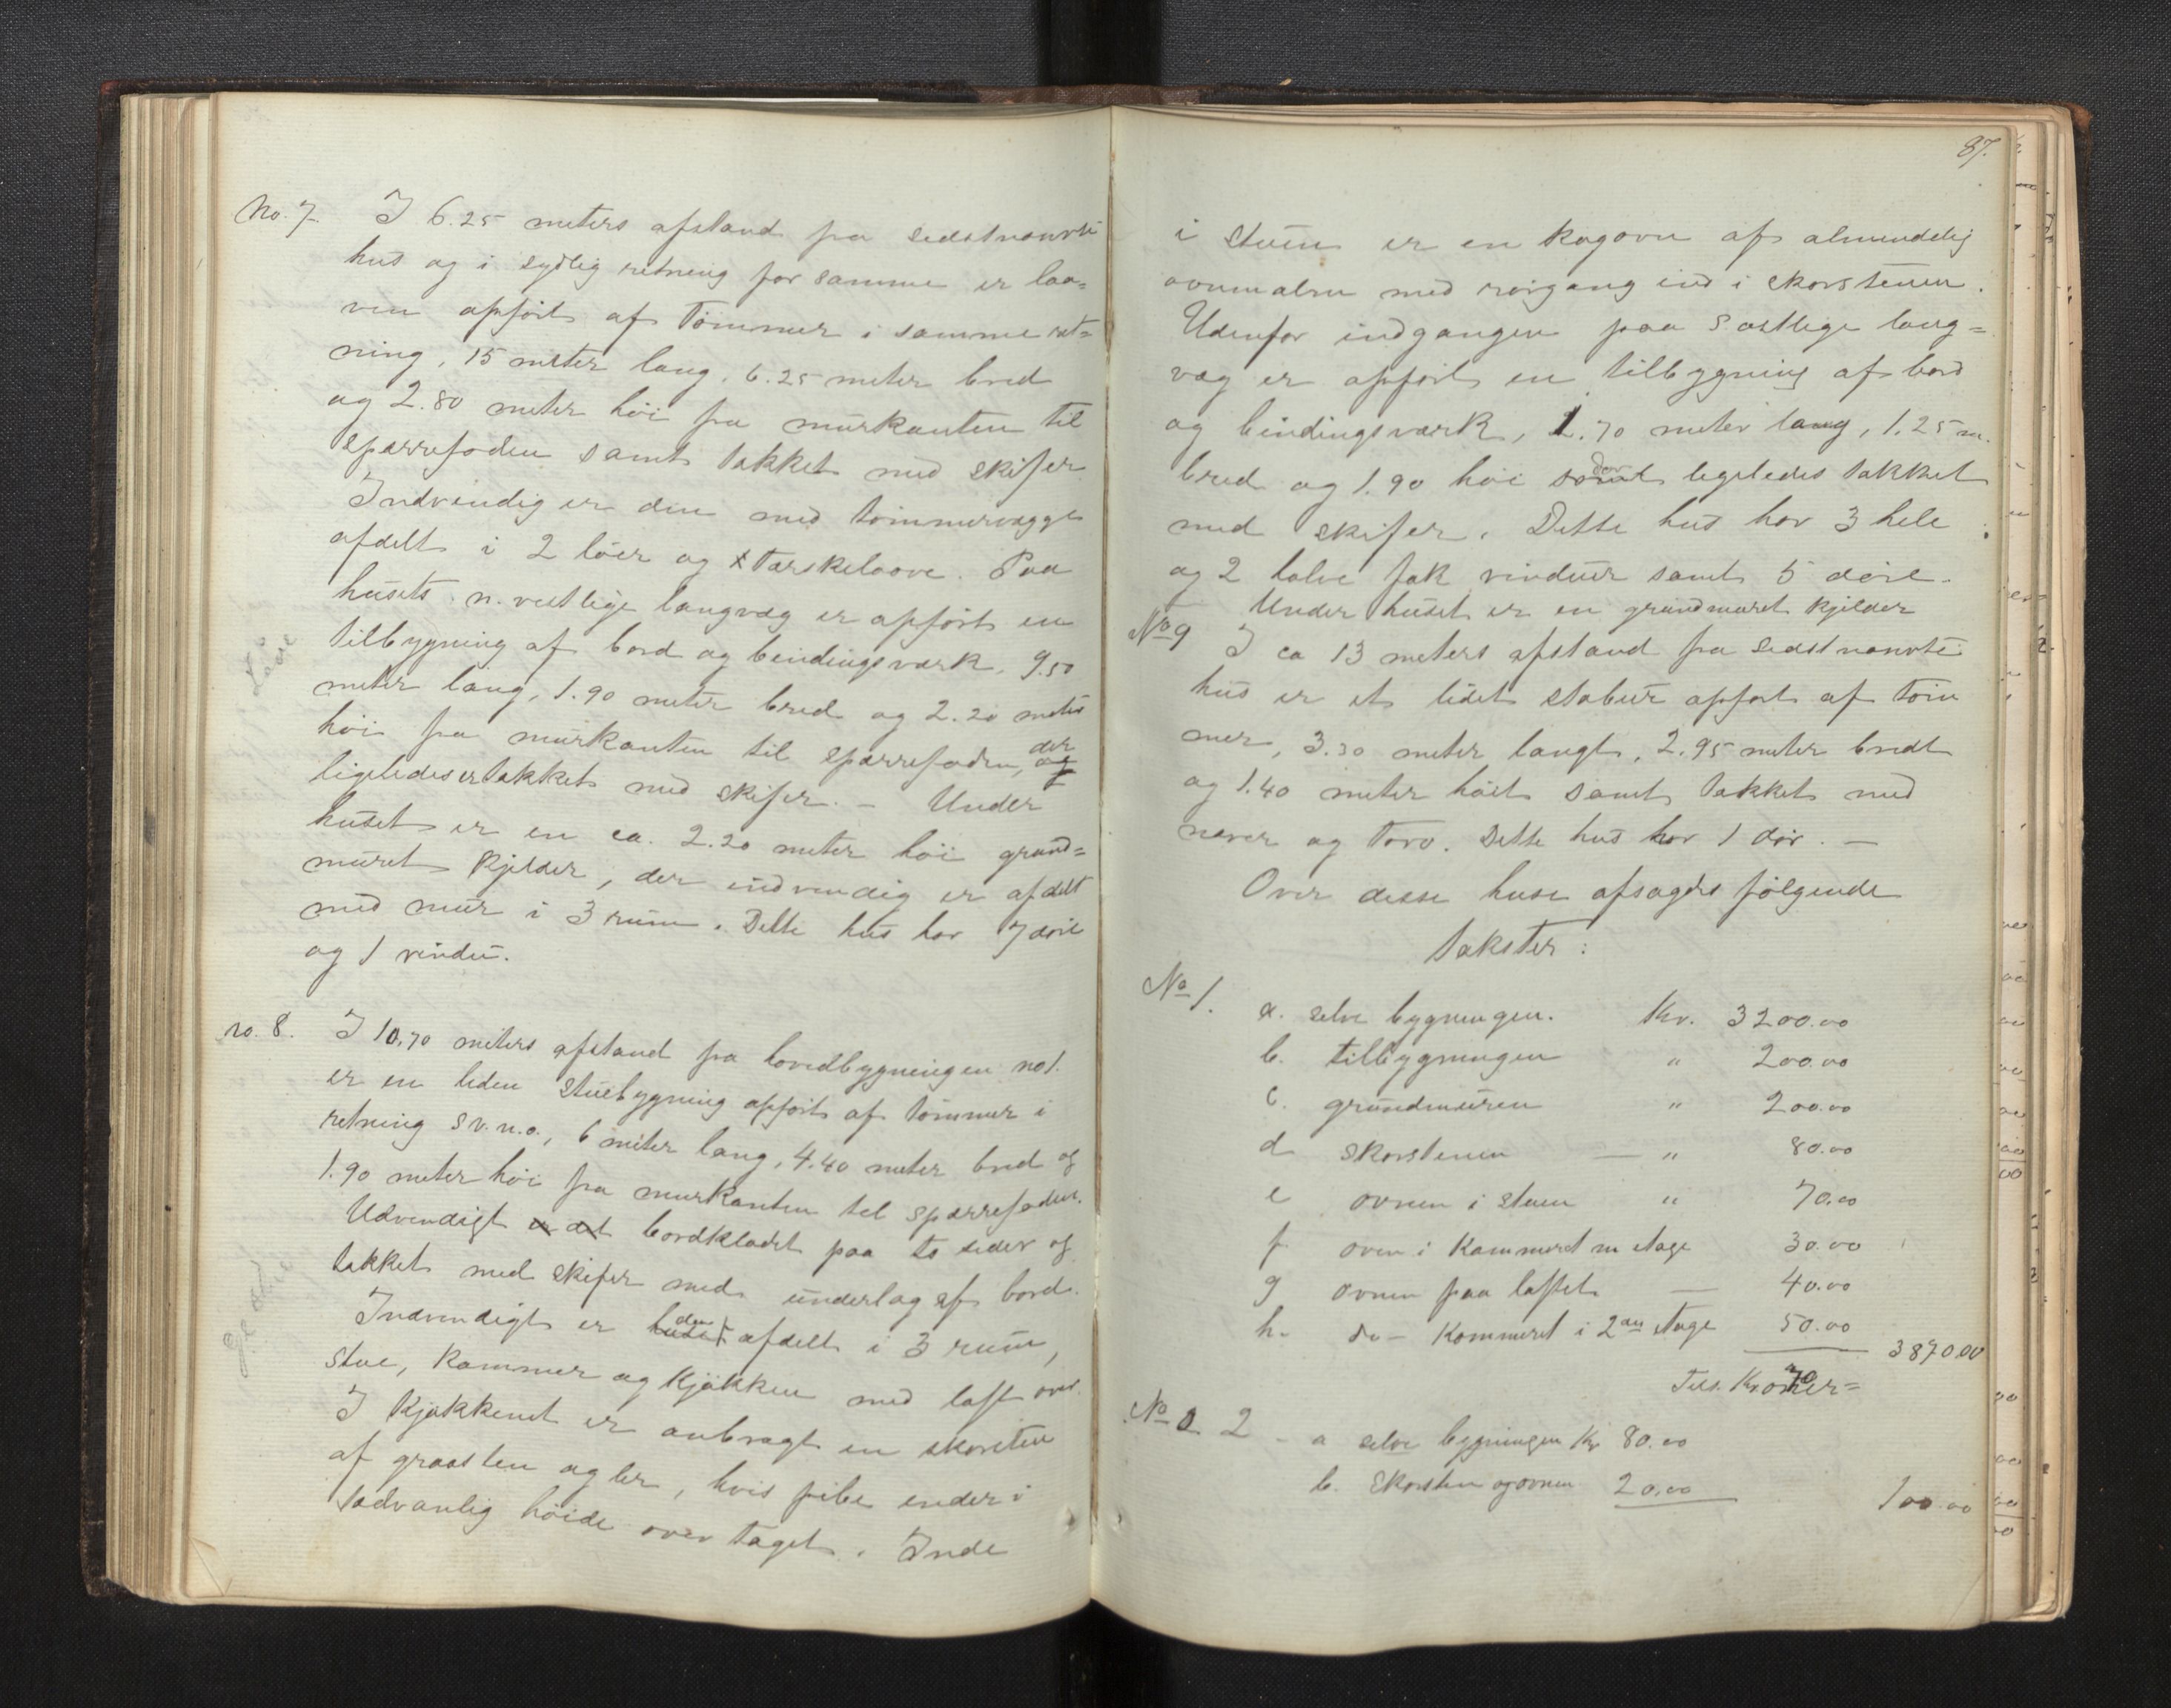 No. 7. I 6.25 meters afstand fra sidstnævnte
hus og i sydlig retning for samme er laa=
ven opført af tømmer i samme ret=
ning, 15 meter lang, 6.25 meter bred
og 2.80 meter høi fra murkanten til
sparrefoden samt tækket med skifer.
Indvendig er den med tømmervægge
afdelt i 2 løer og tærskelaave. Paa
husets n. vestlige langvæg er opført en
tilbygning af bord og bindingsværk, 9.50
meter lang, 1.90 meter bred og 2.20 meter
høi fra murkanten til sparrefoden, der og
ligeledes er tækket med skifer. – Under
huset er en ca. 2.20 meter høi grund=
muret kjelder, der indvendig er afdelt
med mur i 3 rum. Dette hus har 7 døre
og 1 vindu.
no. 8. I 10.70 meters afstand fra hovedbygningen no 1.
er en liden stuebygning opført af tømmer i
retning s.v.n.o., 6 meter lang, 4.40 meter bred og
1.90 meter høi fra murkanten til sparrefoden.
Udvendigt er det bordklædt paa to sider og
tækket med skifer med underlag af bord.
Indvendigt er huset den afdelt i 3 rum,
stue, kammer og kjøkken med loft over.
I kjøkkenet er anbragt en skorsten
af graasten og ler, hvis pibe ender i
sædvanlig høide over taget. Inde
87.
i stuen er en kogovn af almindelig
ovnmalm med røigang ind i skorstenen.
Udenfor indgangen paa s østlige lang=
væg er opført en tilbygning af bord
og bindingsværk, 1.70 meter lang, 1.25 m.
bred og 1.90 høi samt der ligeledes tækket
med skifer. Dette hus har 3 hele
og 2 halve fak vinduer samt 5 døre.
Under huset er en grundmuret kjelder
No 9 I ca 13 meters afstand fra sidstnævnte
hus er et lidet stabur opført af tøm
mer, 3.30 meter langt, 2.95 meter bredt
og 1.40 meter høit samt tækket med
næver og torv. Dette hus har 1 dør. –
Over disse huse afsagdes følgende
takster:
No 1. a. selve bygningen. Kr. 3200.00
b. tilbygningen " 200.00
c. grundmuren " 200.00
d skorstenen — " 80.00
e ovnen i stuen " 70.00
f oven i kammeret m etage 30.00
g ovnen paa loftet — 40.00
h. do – kammeret i 2den etage 50.00
3870.00
Tils. Kroner=
No 2 – a selve bygningen Kr 80.00
b. Skorsten og ovnen 20.00
100.00